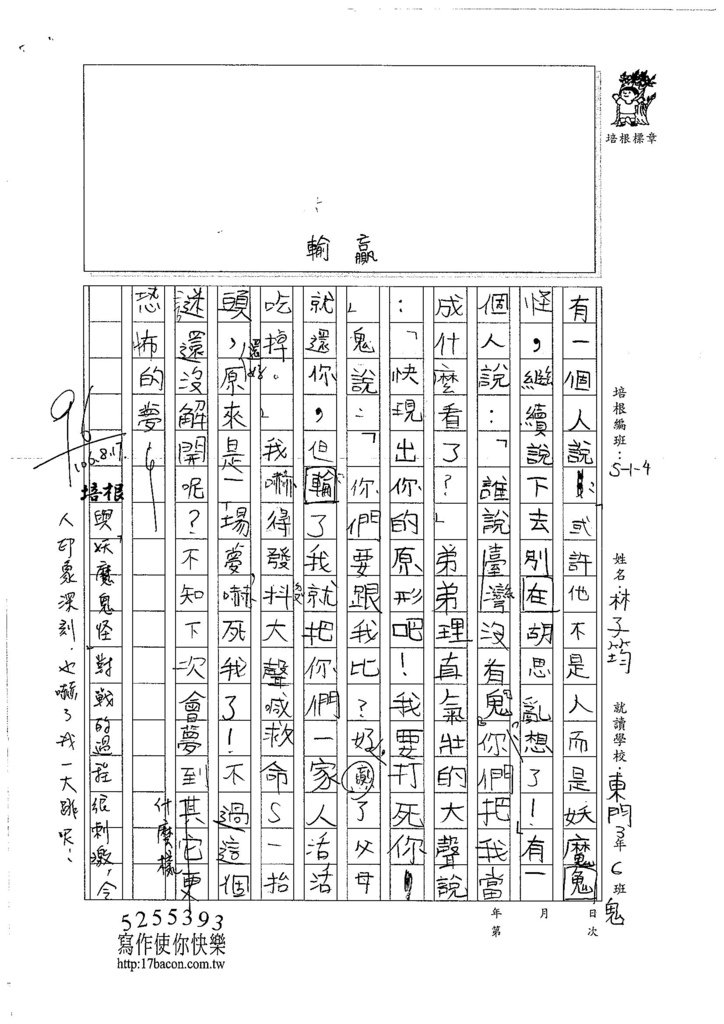 培根標章
輸 贏
培根編班：S-1-4
姓名：林子筠
就讀學校：東門3年6班
鬼
有一個人說：或許他不是人而是妖魔鬼
怪，繼續說下去別在胡思亂想了！有一
個人說：「誰說臺灣沒有鬼，你們把我當
成什麼看了？」弟弟理直氣壯的大聲說
：「快現出你的原形吧！我要打死你！
」鬼說：「你們要跟我比？好，贏了父母
就還你，但輸了我就把你們一家人活活
吃掉。」我嚇得發抖大聲喊救命S一抬
頭，原來是一場夢嚇死我了！不過這個
還好
謎還沒解開呢？不知下次會夢到其它更
什麼樣
恐怖的夢
96
106.8.17.
培根
與「妖魔鬼怪」對戰的過程很刺激，令
人印象深刻，也嚇了我一大跳呢！
年 月 日
第 次
5255393
寫作使你快樂
http:17bacon.com.tw